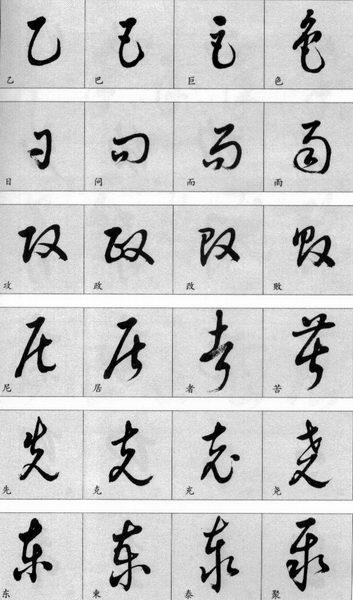 乙 巴 巨 色
日 问 而 雨
攻 政 改 败
尼 居 者 苦
先 克 充 尧
东 東 泰 聚